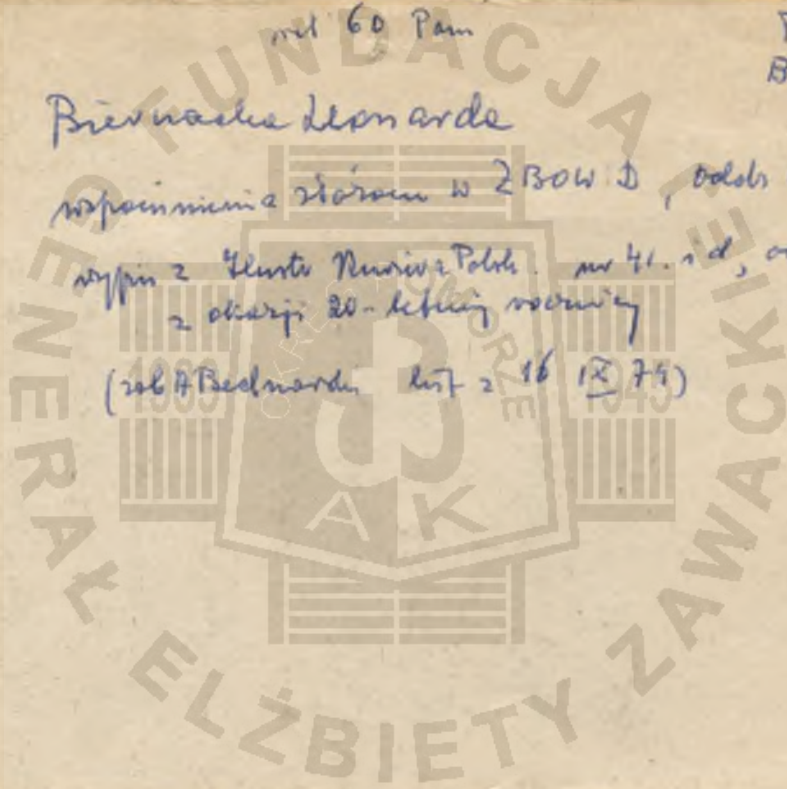 60 Pom
B
Biernacka Leonarda
wspomnienia złożone w ZBOWiD, oddz
wypis z Ilustr Kuriera Polsk. nr 41.
z okazji 20-letniej rocznicy
(zob A Bednarek list z 16 IX 74)
FUNDACJA
GENERAŁ ELŻBIETY ZAWACKIEJ
OKRĘG POMORZE
1939 1945
AK